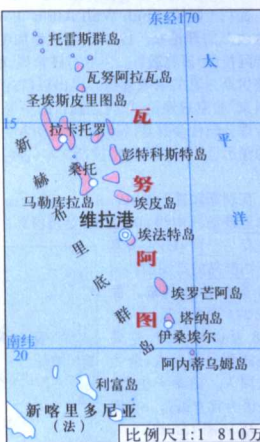 东经170
托雷斯群岛
太
瓦努阿拉瓦岛
圣埃斯皮里图岛
瓦
15
拉卡托罗
平
新
彭特科斯特岛
赫
桑托
努
马勒库拉岛
埃皮岛
布
维拉港
洋
里
埃法特岛
阿
底
埃罗芒阿岛
群
图
塔纳岛
南纬
伊桑埃尔
岛
20
阿内蒂乌姆岛
利富岛
新喀里多尼亚
(法)
比例尺1:1 810万